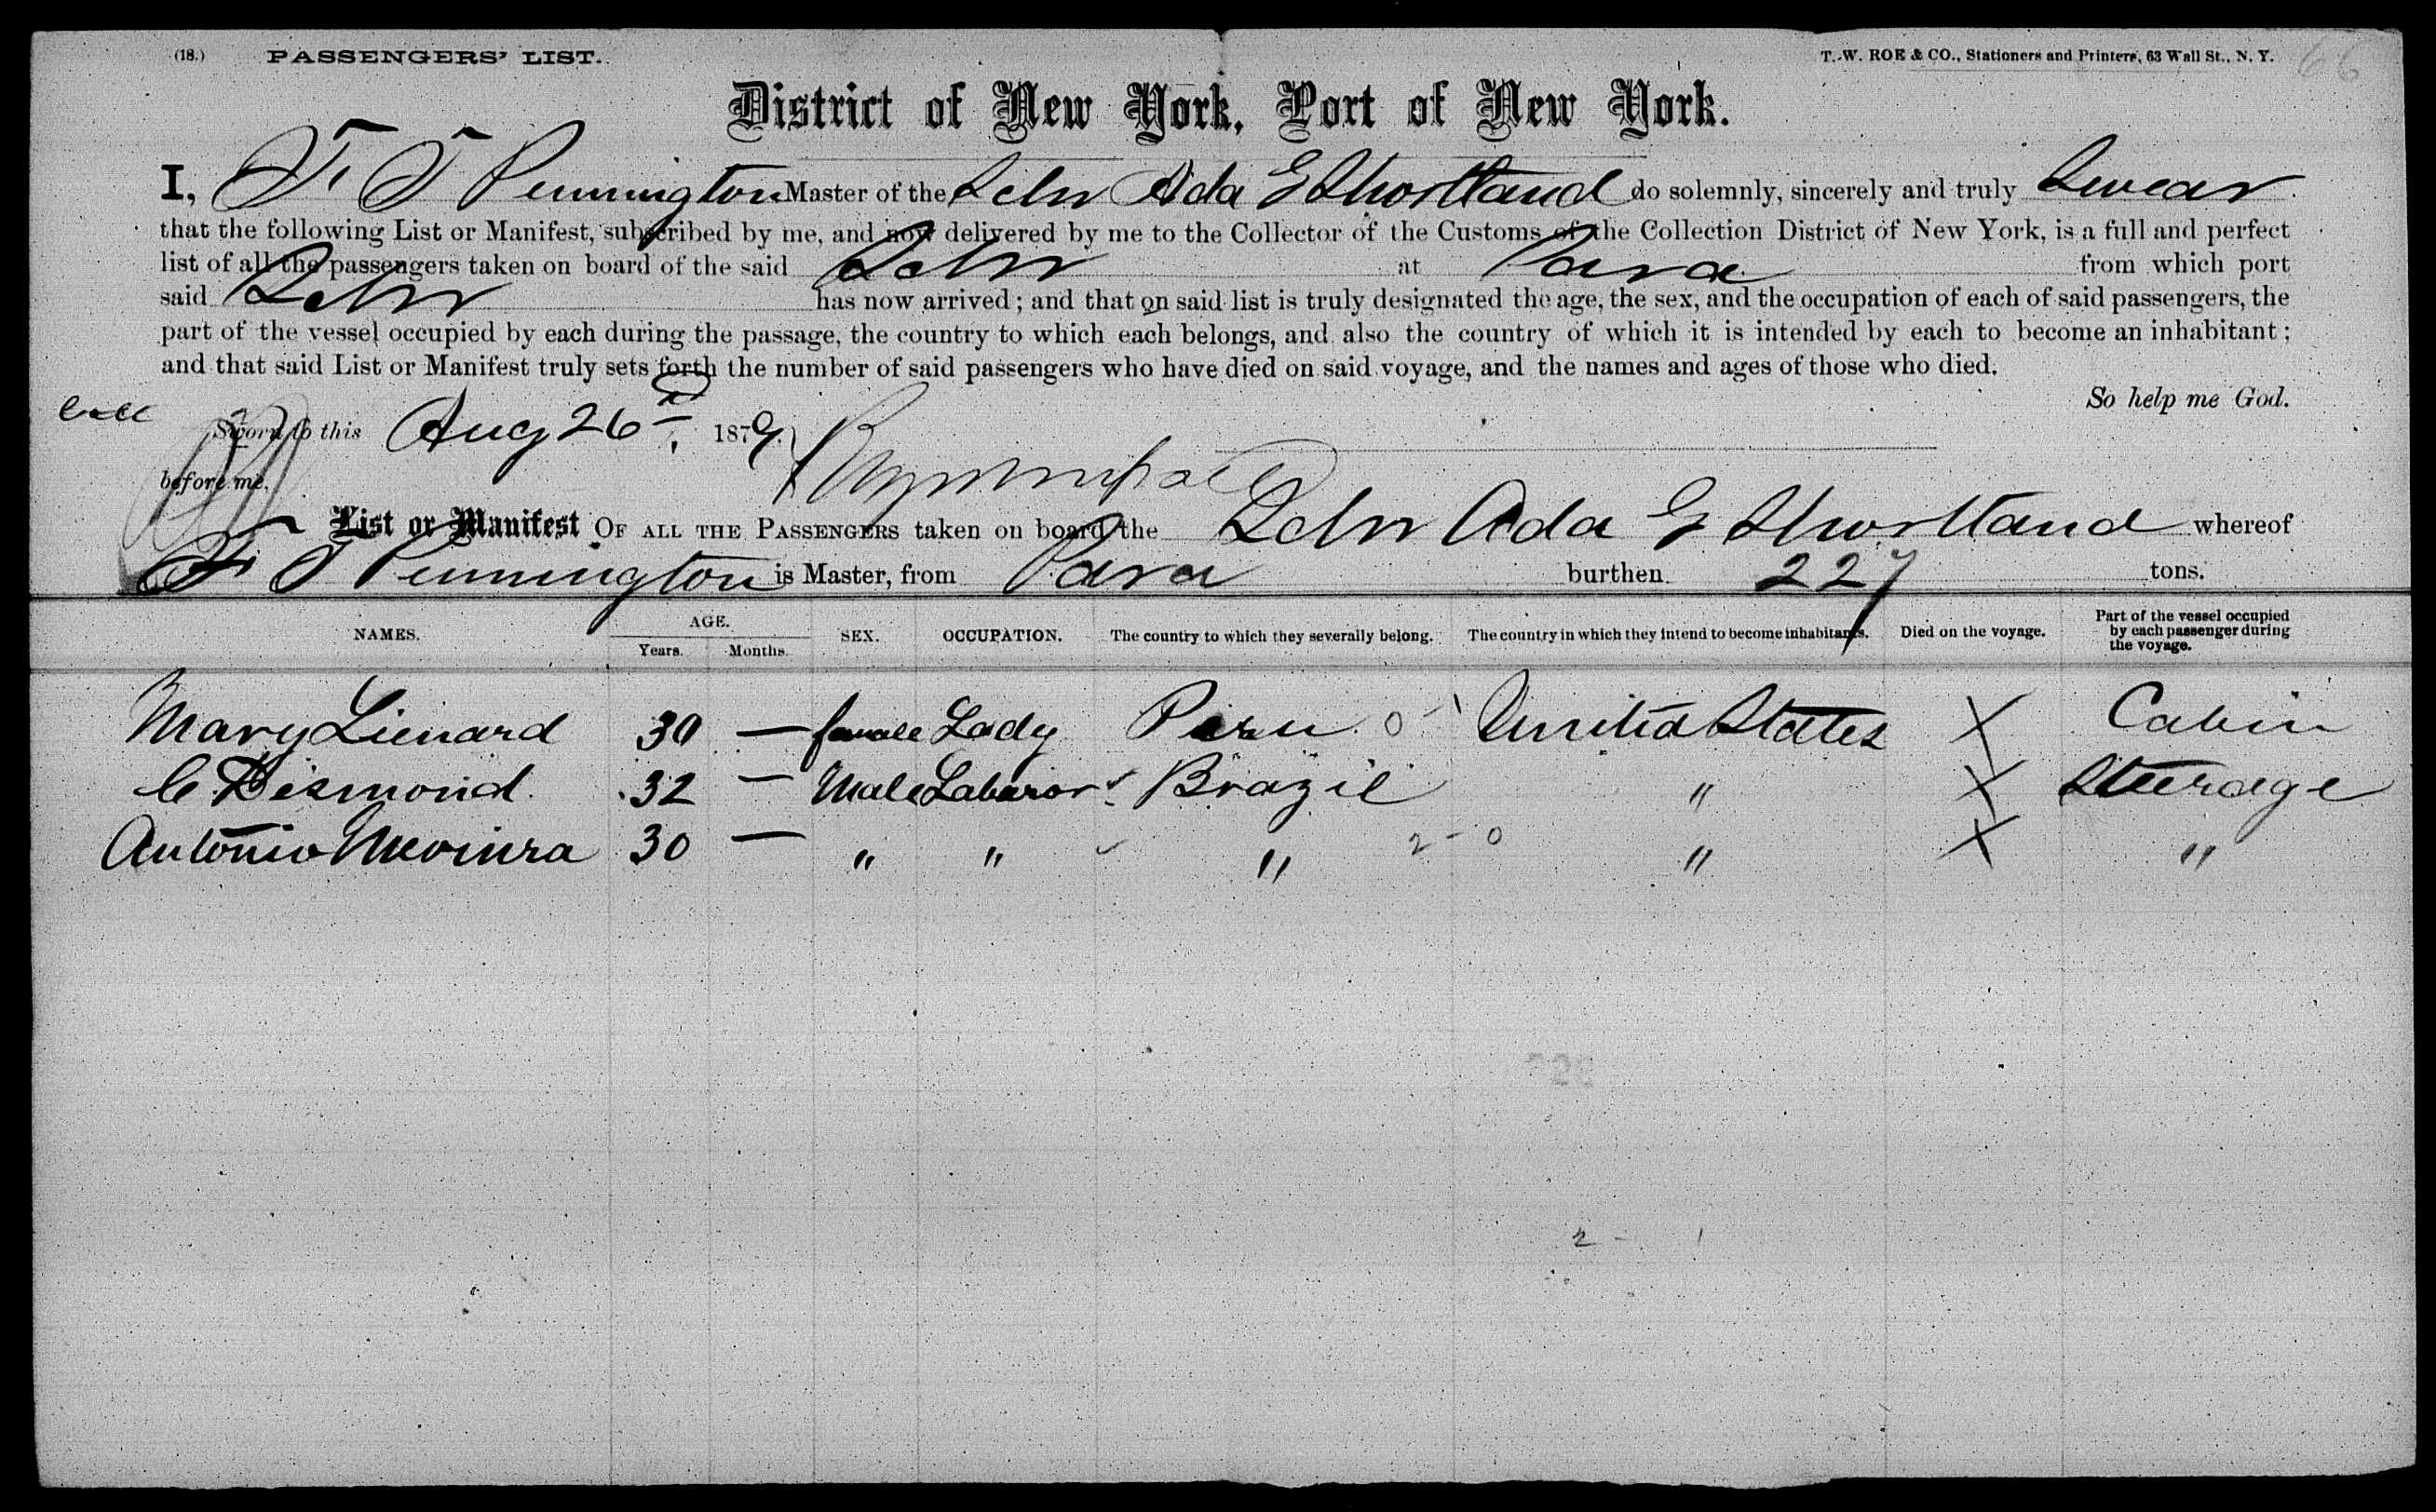 (18.) PASSENGERS' LIST. T. W. ROE & CO., Stationers and Printers, 63 Wall St., N. Y. 66
District of New York, Port of New York.
I, F. T Pennington Master of the Schr Ada E Shortland do solemnly, sincerely and truly Swear
that the following List or Manifest, subscribed by me, and now delivered by me to the Collector of the Customs of the Collection District of New York, is a full and perfect
list of all the passengers taken on board of the said Schr at Para from which port
said Schr has now arrived; and that on said list is truly designated the age, the sex, and the occupation of each of said passengers, the
part of the vessel occupied by each during the passage, the country to which each belongs, and also the country of which it is intended by each to become an inhabitant;
and that said List or Manifest truly sets forth the number of said passengers who have died on said voyage, and the names and ages of those who died.
So help me God.
Sworn to this Aug 26 1879.
before me,
List or Manifest OF ALL THE PASSENGERS taken on board the Schr Ada E Shortland whereof
F. T Pennington is Master, from Para burthen 227 tons.
NAMES. AGE. Years. Months. SEX. OCCUPATION. The country to which they severally belong. The country in which they intend to become inhabitants. Died on the voyage. Part of the vessel occupied by each passenger during the voyage.
Mary Lienard 30 — female Lady Peru 0 - 1 United States X Cabin
C Desmond 32 — Male Laborer Brazil " X Steerage
Antonio 30 — " " " 2 - 0 " X "
2 - 1